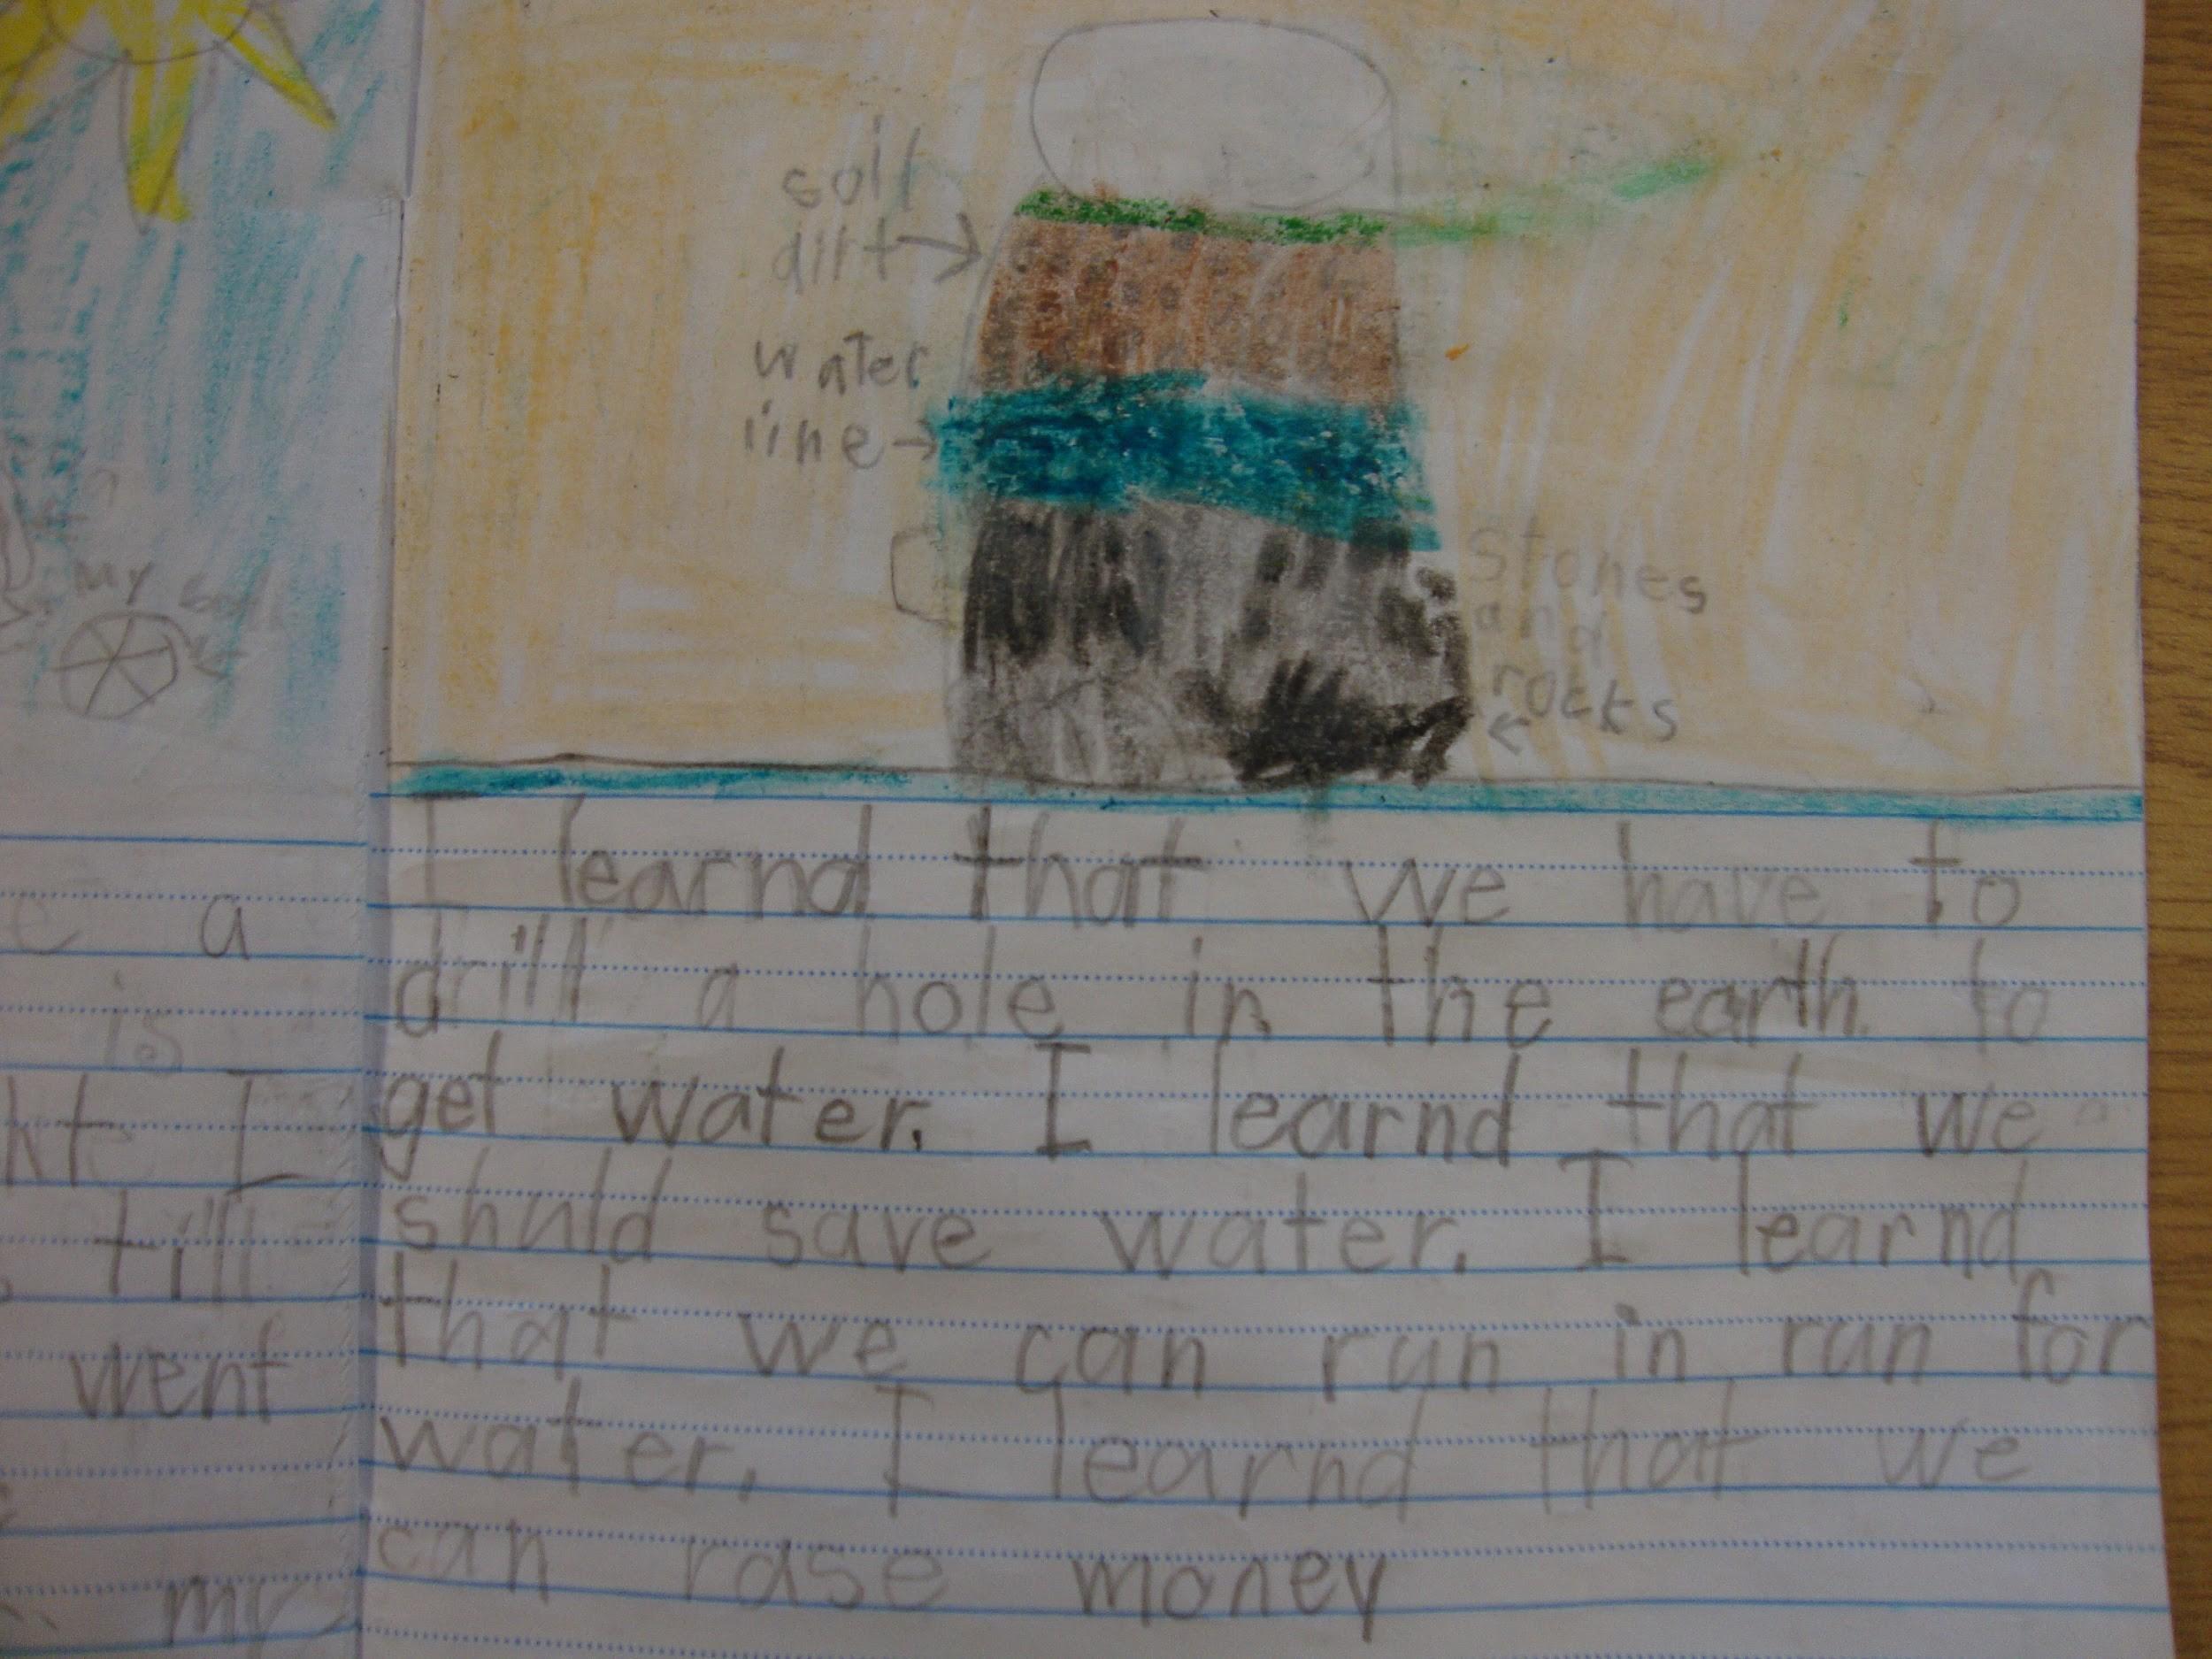 soil
dirt
water
line
stones
and
rocks
my
a
is
I
till
went
my
I learnd that we have to
drill a hole in the earth to
get water. I learnd that we
shuld save water. I learnd
that we can run in run for
water. I learnd that we
can rase money